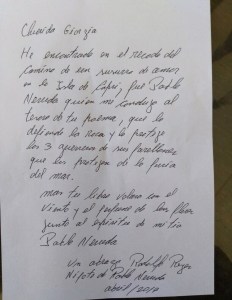 Querida Giorgia
He encontrado en el recodo del
camino de un
en la Isla de Capri, fue Pablo
Neruda quien me condujo al
tesoro de tu poema, que lo
defiende la roca y lo protege
los 3 de sus farellones
que los protegen de la furia
del mar.
tu libro volara en el
Viento y el perfume de las flores
junto al espíritu de mi tío
Pablo Neruda
Un abrazo Rodolfo Reyes
Nipote de Pablo Neruda
abril / 2010